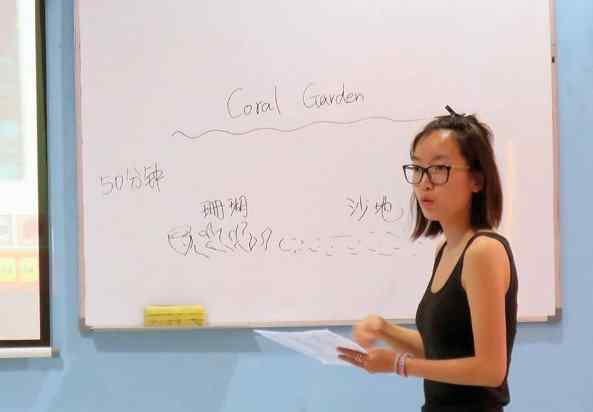 Coral Garden
50分钟
珊瑚 沙地